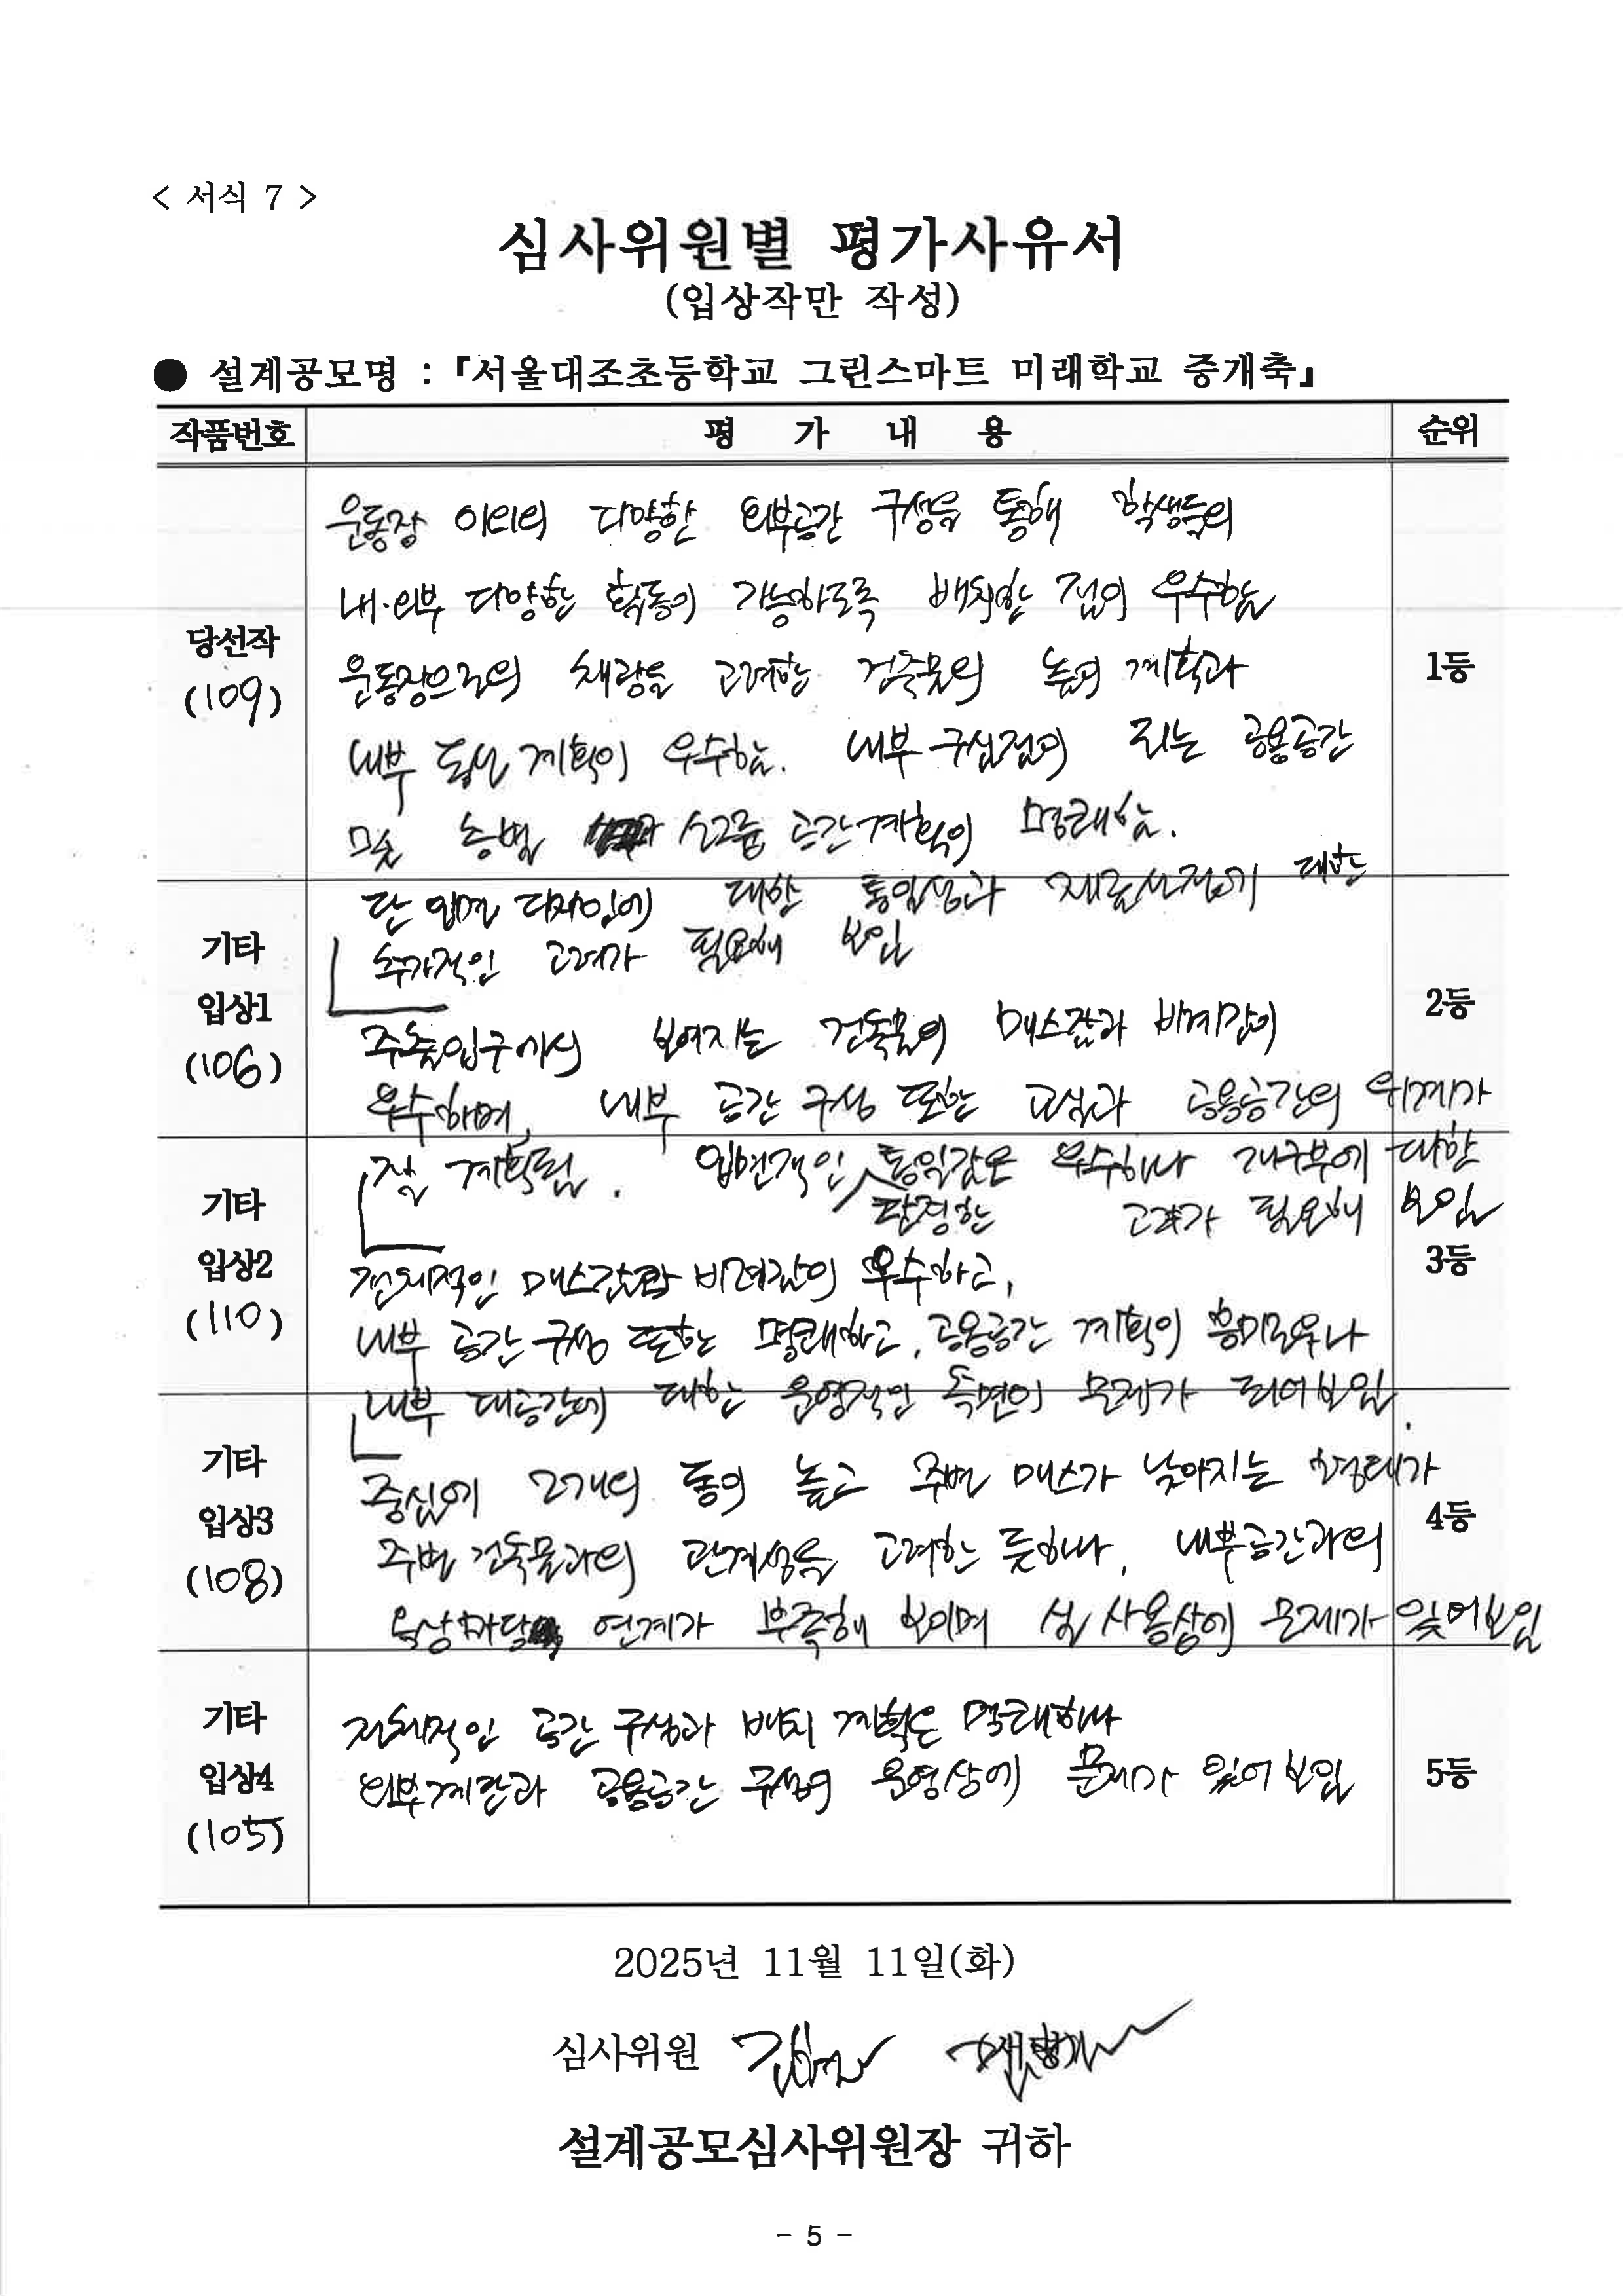 < 서식 7 >
심사위원별 평가사유서
(입상작만 작성)
● 설계공모명 : 『서울대조초등학교 그린스마트 미래학교 증개축』
작품번호 평 가 내 용 순위
당선작
(109)
운동장 이외의 다양한 외부공간 구성을 통해 학생들의
내·외부 다양한 활동이 가능하도록 배치한 점이 우수함
운동장으로의 채광을 고려한 건축물의 높이 계획과
내부 동선 계획이 우수함. 내부 구심점이 되는 공용공간
및 층별 소그룹 공간계획이 명쾌함.
1등
단 입면 디자인에 대한 통일성과 재료선정기 대한
추가적인 고려가 필요해 보임
기타
입상1
(106)
주출입구에서 보여지는 건축물의 매스감과 비례감이
우수하며, 내부 공간 구성 또한 교실과 공용공간의 위계가
2등
잘 계획됨. 입면적인 통일감은 우수하나 개구부에 대한
단정한 고려가 필요해 보임
기타
입상2
(110)
전체적인 매스감과 비례감이 우수하고,
내부 공간 구성 또한 명쾌하고, 공용공간 계획이 흥미로우나
3등
내부 대공간에 대한 운영적인 측면이 문제가 되어보임.
기타
입상3
(108)
중심에 2개의 동이 높고 주변 매스가 낮아지는 형태가
주변 건축물과의 관계성을 고려한 듯하나, 내부공간과의
옥상마당 연계가 부족해 보이며 실 사용상에 문제가 있어보임
4등
기타
입상4
(105)
전체적인 공간 구성과 배치 계획은 명쾌하나
외부계단과 공용공간 구성의 운영상에 문제가 있어 보임
5등
2025년 11월 11일(화)
심사위원
설계공모심사위원장 귀하
- 5 -